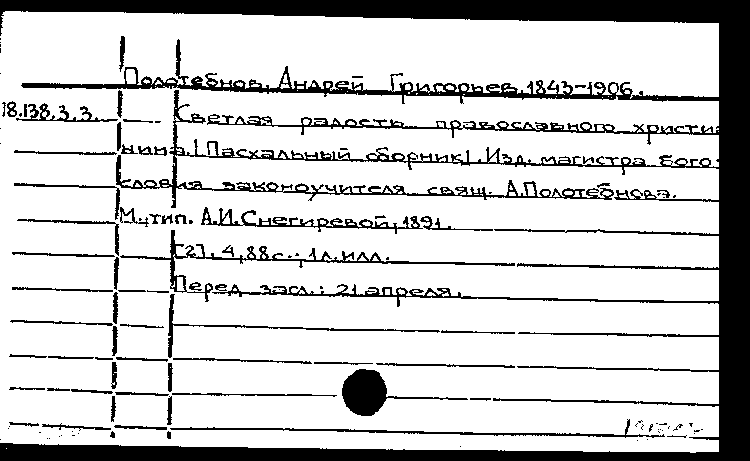 Полотебнов, Андрей Григорьев, 1843-1906.
18.138.3.3. Светлая радость православного христиа
нина. [Пасхальный сборник]. Изд. магистра бого-
словия законоучителя свящ. А.Полотебнова.
М., тип. А.И.Снегиревой, 1891.
[2], 4, 88 с.; 1 л. илл.
Перед загл.: 21 апреля.